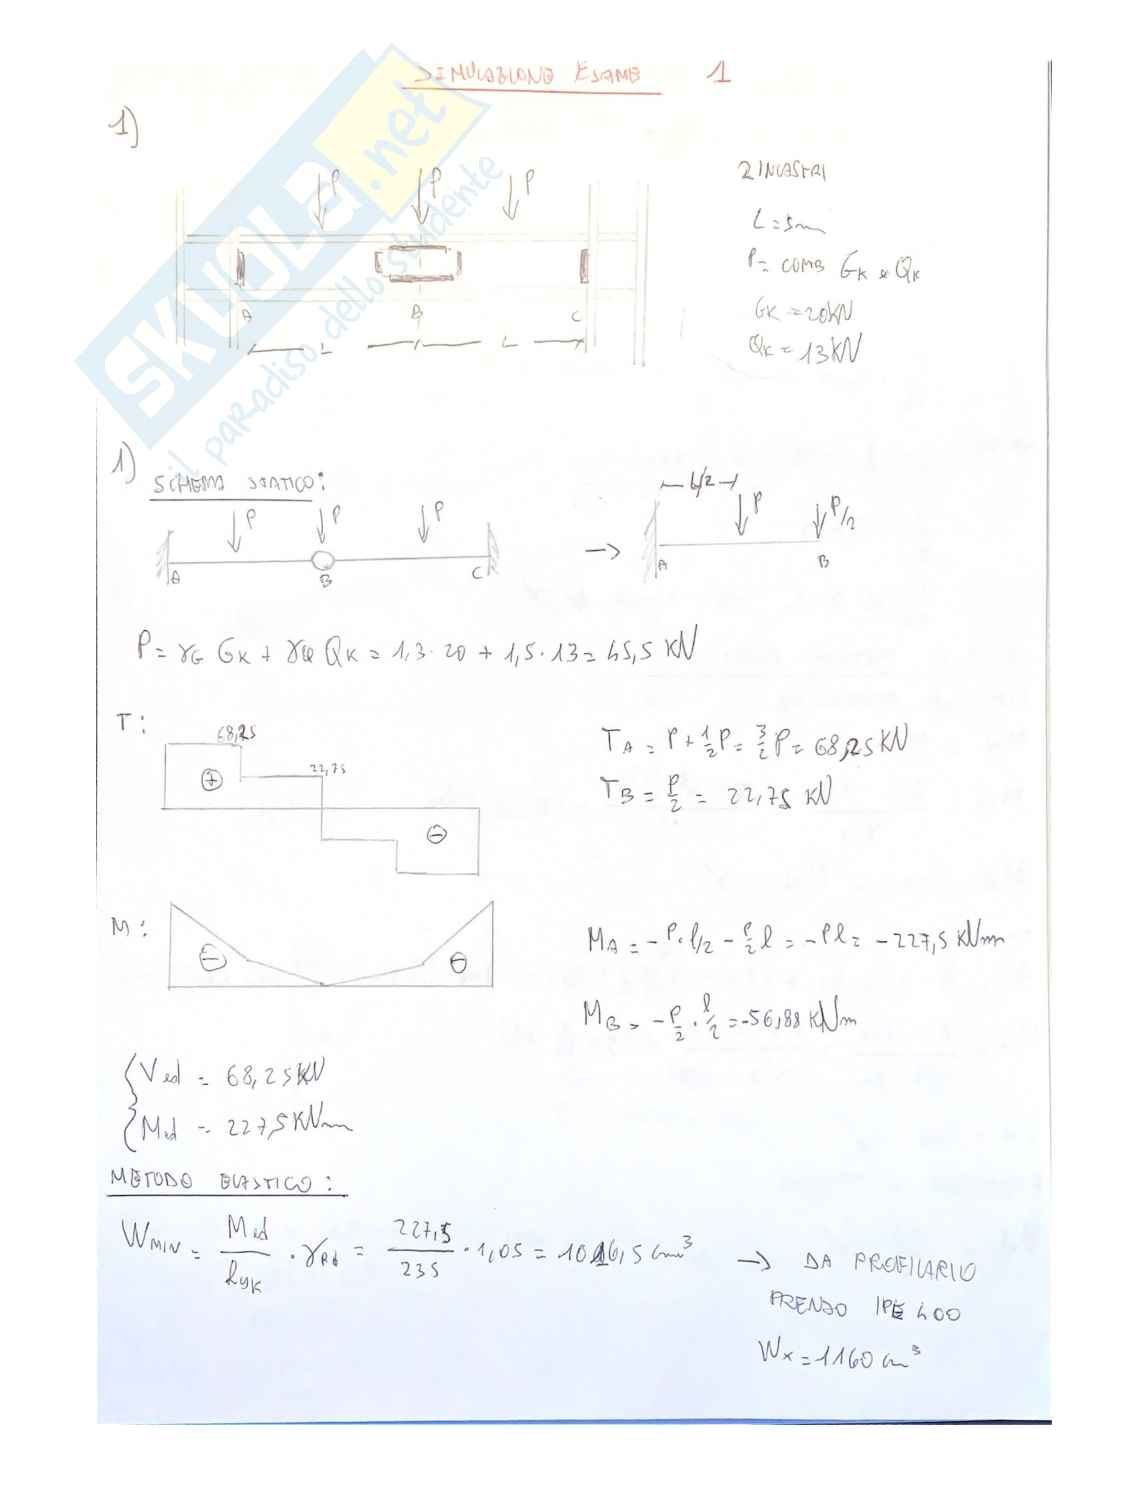 SIMULAZIONE ESAME 1
1)
P P P
2 INCASTRI
L = 5m
P = COMB GK e QK
GK = 20kN
QK = 13kN
A B C
L L
SKUOLA.net
il paradiso dello studente
1) SCHEMA STATICO:
P P P
A B C
→ L/2
P P/2
A B
P = γG GK + γQ QK = 1,3 · 20 + 1,5 · 13 = 45,5 KN
T:
68,25
22,75
+
−
TA = P + 1/2 P = 3/2 P = 68,25 KN
TB = P/2 = 22,75 KN
M:
−
−
MA = − P · l/2 − P/2 l = − Pl = − 227,5 KNm
MB = − P/2 · l/2 = -56,88 KNm
{ Ved = 68,25 KN
Med = 227,5 KNm
METODO ELASTICO:
WMIN = Med/fyK · γRd = 227,5/235 · 1,05 = 1016,5 cm³
→ DA PROFILARIO
PRENDO IPE 400
Wx = 1160 cm³